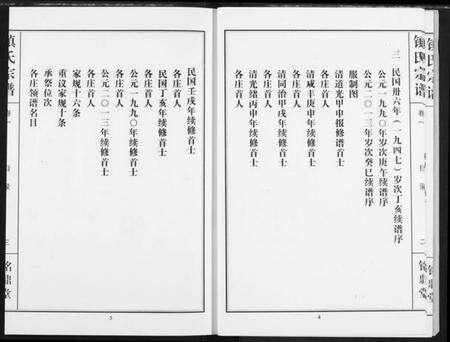 三 民国卅六年（一九四七）岁次丁亥续谱序
公元一九九〇年岁次庚午续谱序
公元二〇一三年岁次癸巳续谱序
服制图
清道光甲申报修谱首士
各庄首人
清咸丰庚申年续修首士
各庄首人
清同治甲戌年续修首士
各庄首人
清光绪丙申年续修首士
各庄首人
4
民国壬戌年续修首士
各庄首人
民国丁亥年续修首士
各庄首人
公元一九九〇年续修首士
各庄首人
公元二〇一三年续修首士
各庄首人
家规十六条
重议家规十条
承祭位次
各庄领谱名目
5
氏宗谱
卷一
三
铭鼎堂